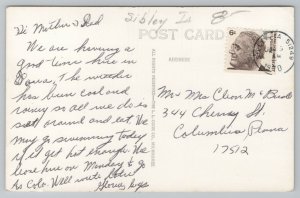 Sibley Ia 8-
POST CARD
ADDRESS
6¢
51249
Hi Mother & Dad
We are having a
good time here in
Iowa. The weather
has been cool and
rainy so all we do is
eat around and eat. We
may go swimming today
if it get hot enough. We
leave here on Monday & go
to Colo. Will write later
Gloria, Guys
Mr & Mrs Cleon
344 Cherry St.
Columbia Penna
17512